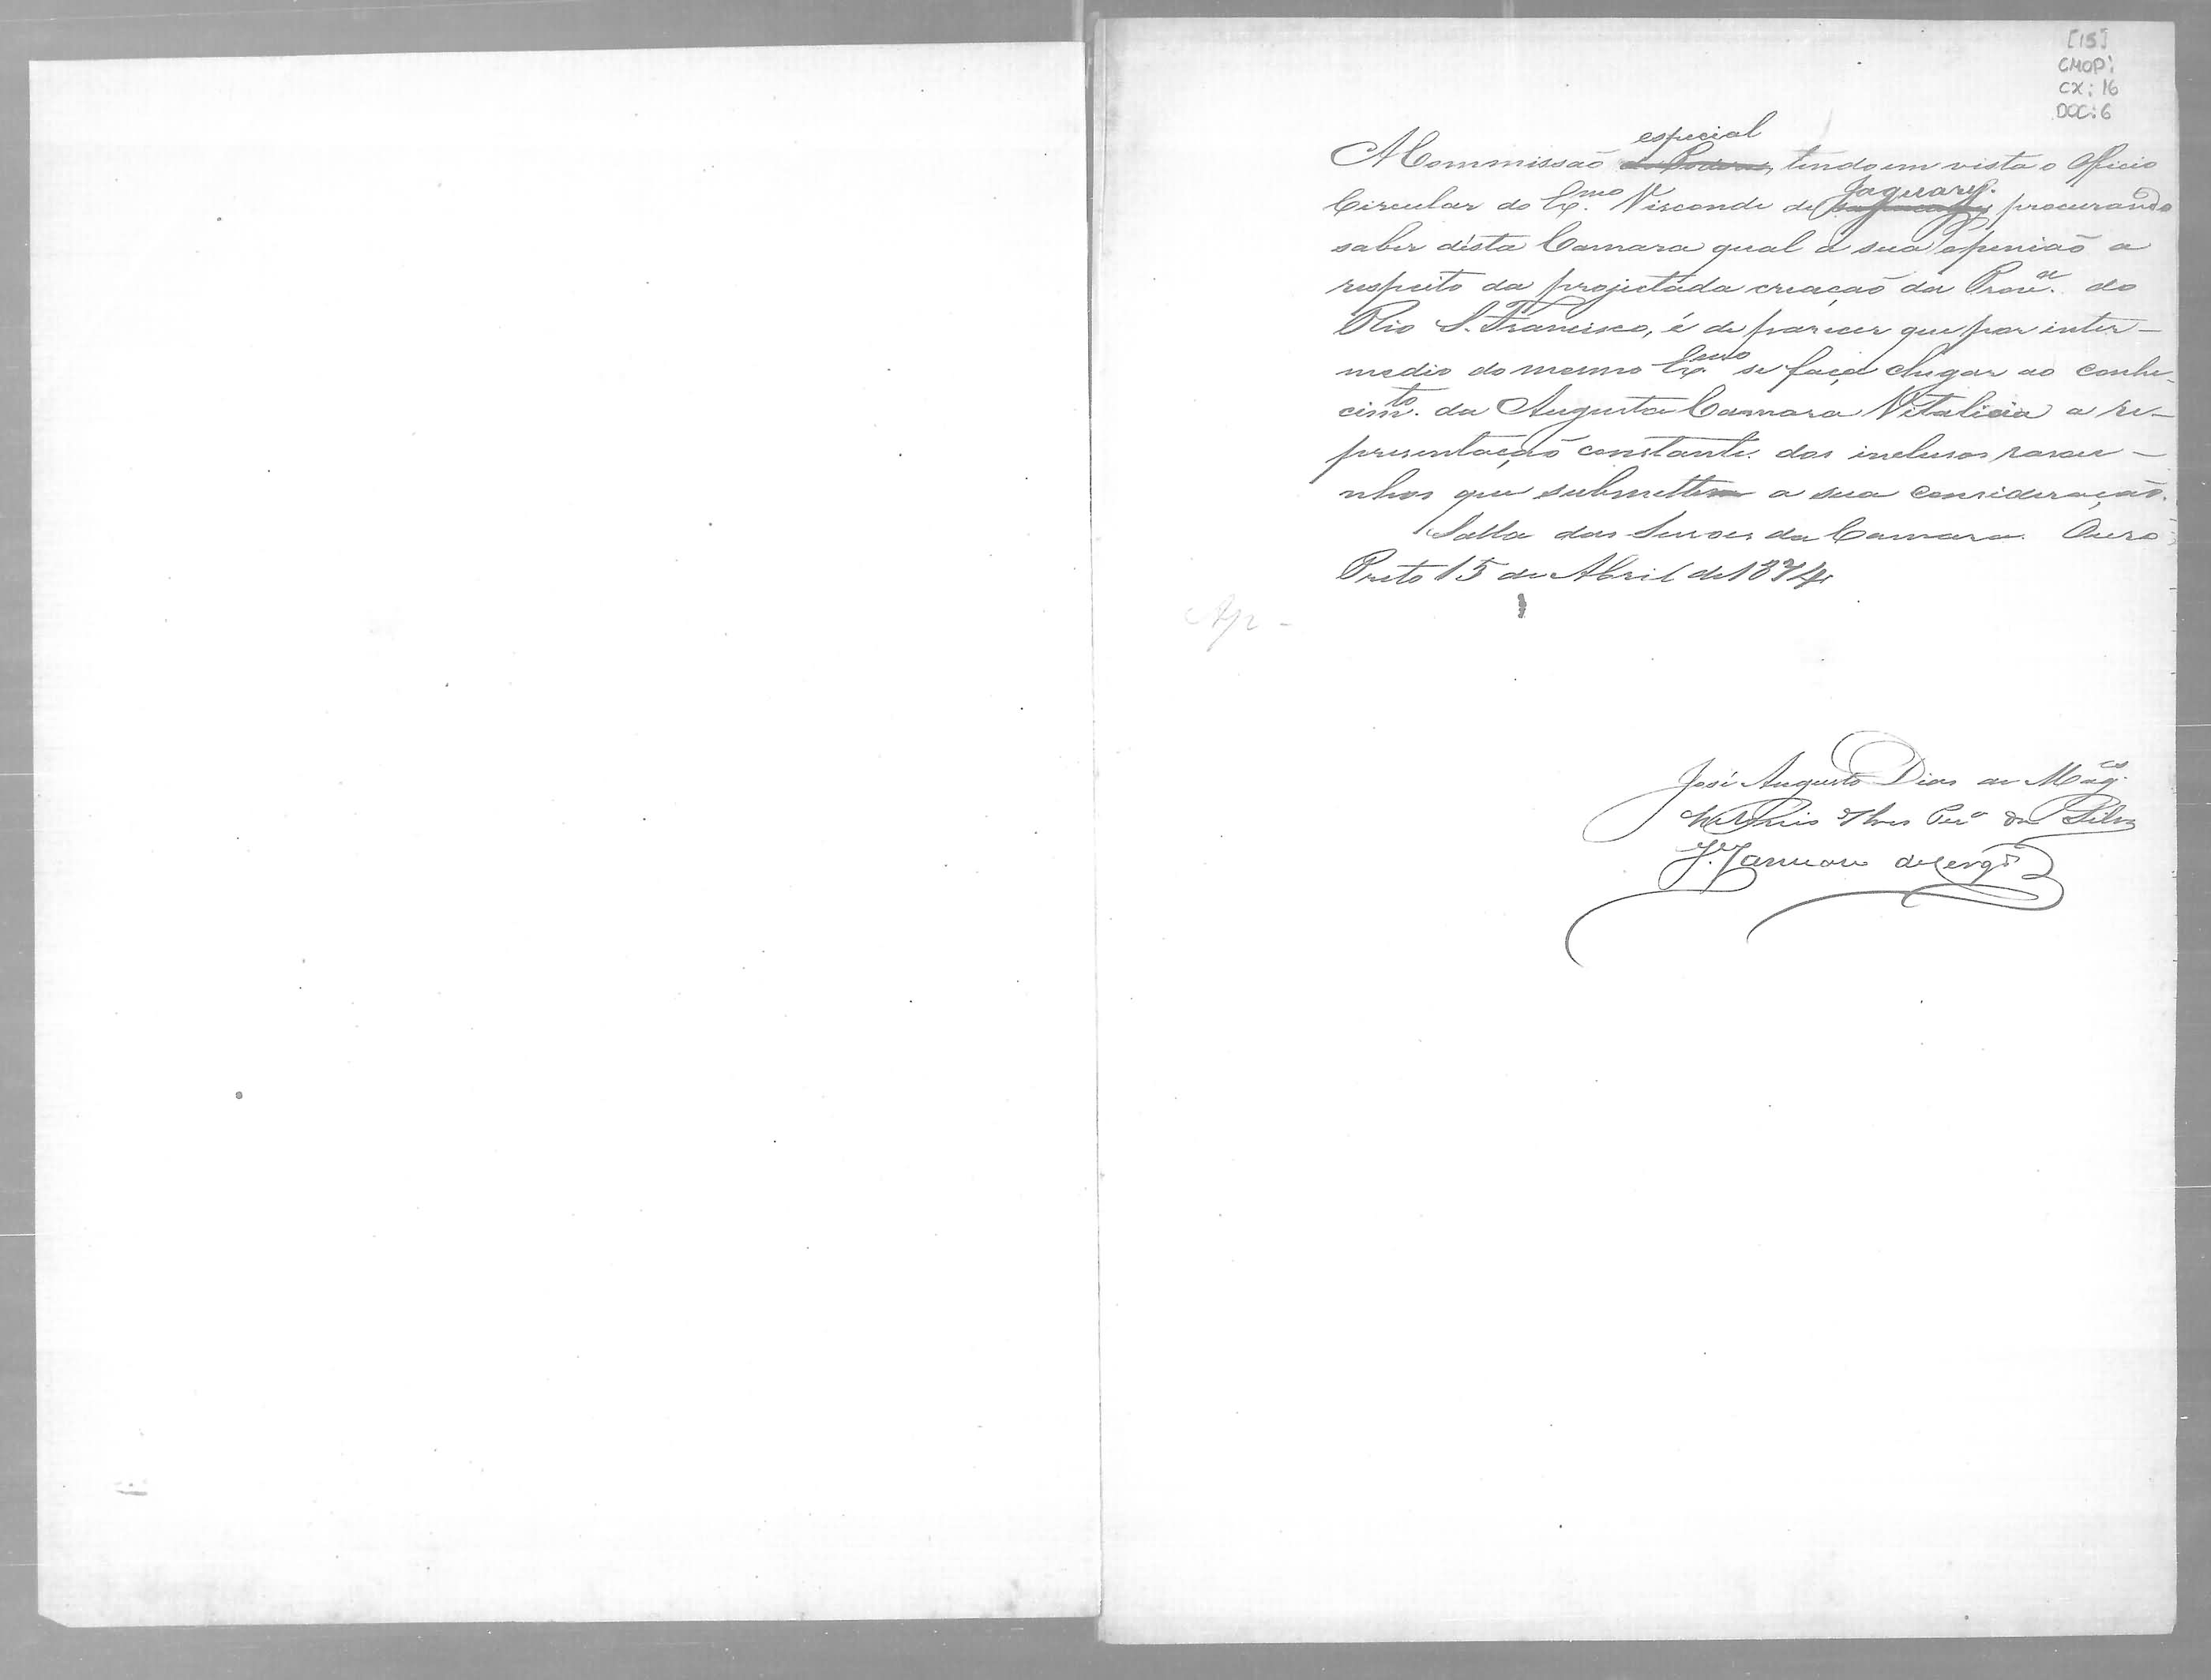 [15]
CMOP:
CX: 16
DOC: 6
especial
A Commissão de Poderes, tendo em vista o Officio
Jaguary.
Circular do Ex.mo Visconde de procurando
saber désta Camara qual a sua openião a
respeito da projectada creação da Prov.a do
Rio S. Francisco, é de parecer que por inter-
medio do mesmo Ex.mo se faça chegar ao conhe-
cim.to da Augusta Camara Vitalicia a re-
presentação constante dos inclusos rascu-
nhos que submette a sua consideração.
Salla das Sessoes da Camara. Ouro
Preto 15 de Abril de 1874
Ap -
José Augusto Dias de Mag.es
Per.a da Silva
J. Januario de Cerq.ra